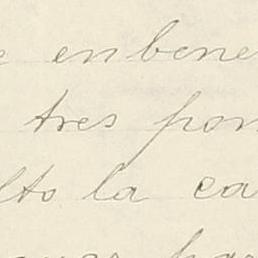 e enbene
tres pon
lto la ca